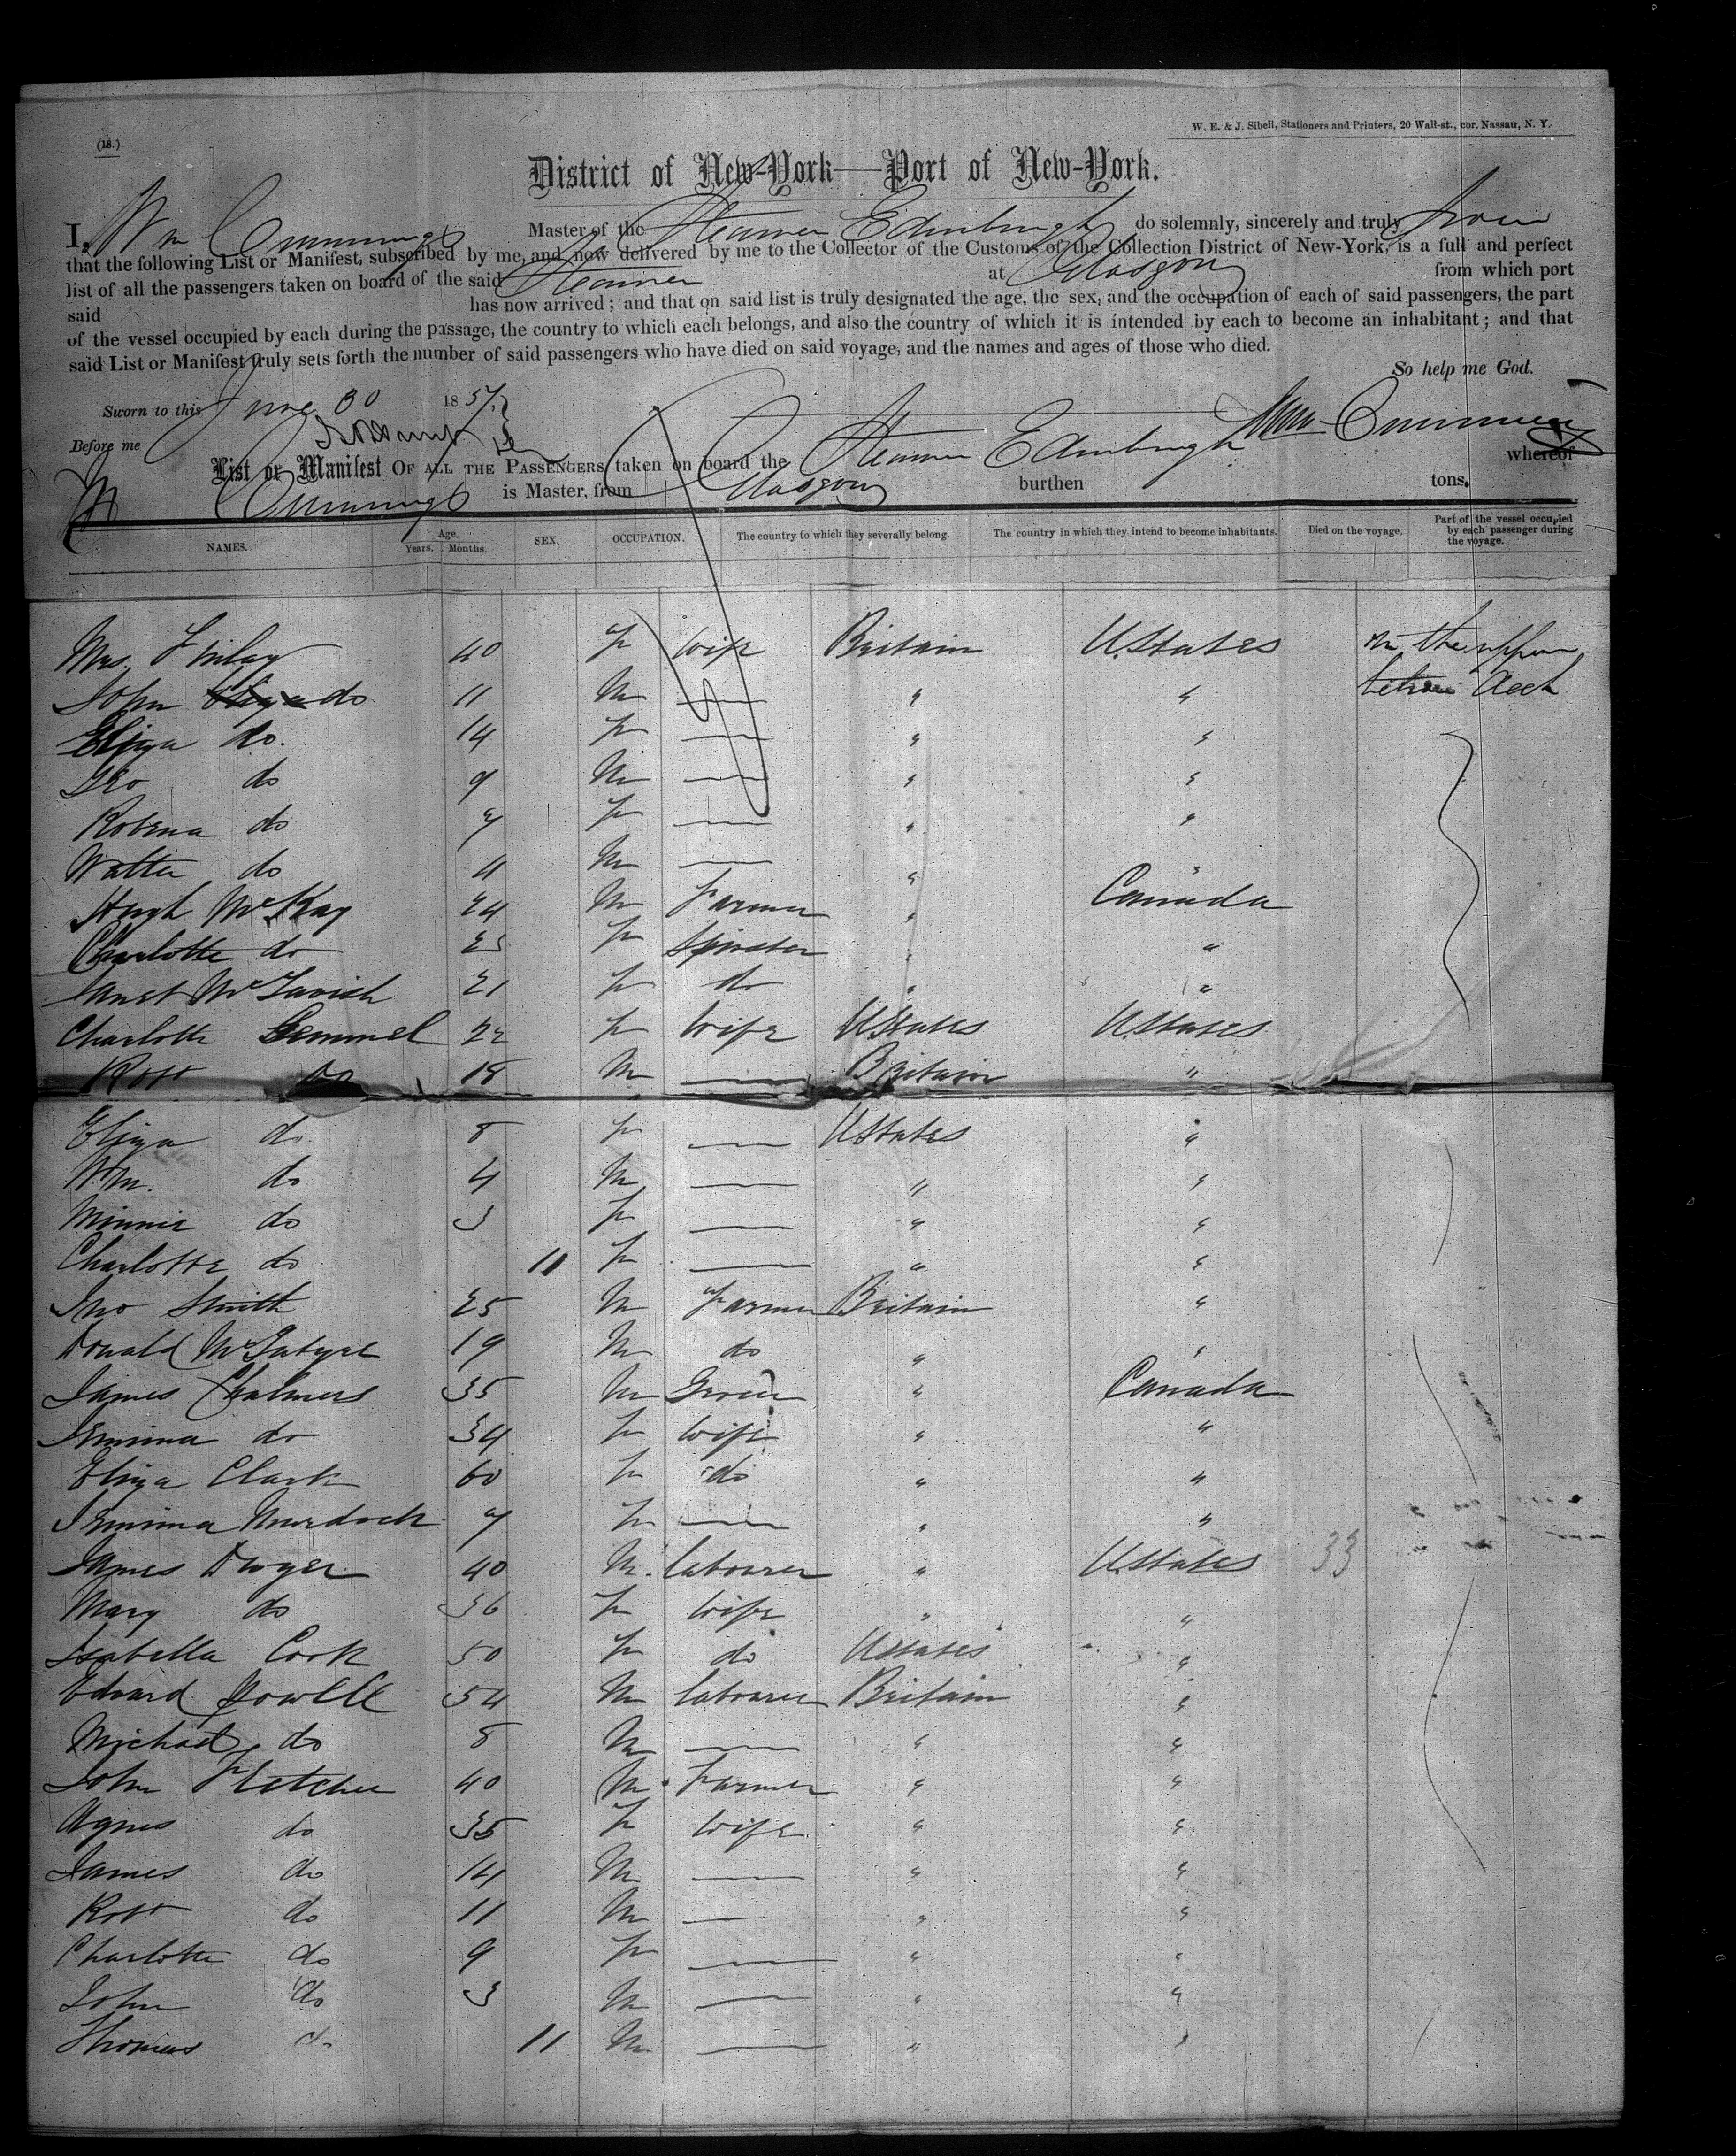 (18.)
W. E. & J. Sibell, Stationers and Printers, 20 Wall-st., cor. Nassau, N. Y.
District of New-York—Port of New-York.
I, Wm Cummings Master of the Steamer Edinburgh do solemnly, sincerely and truly swear
that the following List or Manifest, subscribed by me, and now delivered by me to the Collector of the Customs of the Collection District of New-York, is a full and perfect
list of all the passengers taken on board of the said Steamer at Glasgow from which port
said has now arrived; and that on said list is truly designated the age, the sex, and the occupation of each of said passengers, the part
of the vessel occupied by each during the passage, the country to which each belongs, and also the country of which it is intended by each to become an inhabitant; and that
said List or Manifest truly sets forth the number of said passengers who have died on said voyage, and the names and ages of those who died.
So help me God.
Sworn to this June 30 1857
Before me
Wm Cummings
List or Manifest OF ALL THE PASSENGERS taken on board the Steamer Edinburgh whereof
Cummings is Master, from Glasgow burthen tons.
NAMES. Age. Years. Months. SEX. OCCUPATION. The country to which they severally belong. The country in which they intend to become inhabitants. Died on the voyage. Part of the vessel occupied by each passenger during the voyage.
Mrs. Finlay 40 F wife Britain U.States in the upper
John do 11 M — " " between deck
Eliza do. 14 F — " "
Geo do 9 M — " "
Robina do 7 F — " "
Walter do 4 M — " "
Hugh McKay 24 M Farmer " Canada
Charlotte do 25 F Spinster " "
Janet McTavish 21 F do " "
Charlotte Gemmel 22 F wife UStates U.States
Robt do 18 M — Britain "
Eliza do. 8 F — UStates "
Wm. do 4 M — " "
Minnie do 3 F — " "
Charlotte do 11 F — " "
Jno Smith 25 M Farmer Britain "
Donald McIntyre 19 M do " "
James Chalmers 35 M Grocer " Canada
Jemima do 34 F wife " "
Eliza Clark 60 F do " "
Jemima Murdoch 7 F — " "
James Dwyer 40 M. labourer " U.States 33
Mary do 36 F wife " "
Isabella Cook 50 F do UStates "
Edward Powell 54 M labourer Britain "
Michael do 8 M — " "
John Fletcher 40 M Farmer " "
Agnes do 35 F wife " "
James do 14 M — " "
Robt do 11 M — " "
Charlotte do 9 F — " "
John do 3 M — " "
Thomas do 11 M — " "